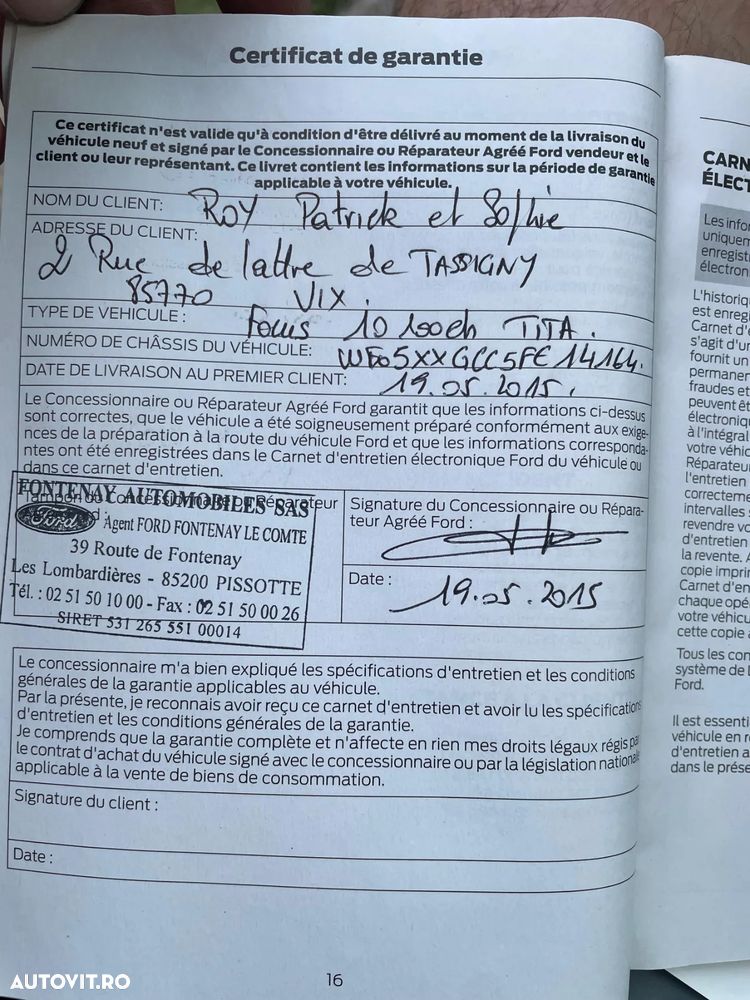 Certificat de garantie
Ce certificat n'est valide qu'à condition d'être délivré au moment de la livraison du
véhicule neuf et signé par le Concessionnaire ou Réparateur Agréé Ford vendeur et le
client ou leur représentant. Ce livret contient les informations sur la période de garantie
applicable à votre véhicule.
NOM DU CLIENT: ROY Patrick et Sophie
ADRESSE DU CLIENT:
2 Rue de lattre de TASSIGNY
85770 VIX.
TYPE DE VEHICULE : Focus 10 100ch TITA.
NUMÉRO DE CHÂSSIS DU VÉHICULE: WF05XXGCC5FE14164.
DATE DE LIVRAISON AU PREMIER CLIENT: 19.05.2015.
Le Concessionnaire ou Réparateur Agréé Ford garantit que les informations ci-dessus
sont correctes, que le véhicule a été soigneusement préparé conformément aux exige-
nces de la préparation à la route du véhicule Ford et que les informations corresponda-
ntes ont été enregistrées dans le Carnet d'entretien électronique Ford du véhicule ou
dans ce carnet d'entretien.
Tampon du Concessionnaire ou Réparateur
FONTENAY AUTOMOBILES SAS
Ford Agent FORD FONTENAY LE COMTE
39 Route de Fontenay
Les Lombardières - 85200 PISSOTTE
Tél. : 02 51 50 10 00 - Fax : 02 51 50 00 26
SIRET 531 265 551 00014
Signature du Concessionnaire ou Répara-
teur Agréé Ford :
Date : 19.05.2015
Le concessionnaire m'a bien expliqué les spécifications d'entretien et les conditions
générales de la garantie applicables au véhicule.
Par la présente, je reconnais avoir reçu ce carnet d'entretien et avoir lu les spécifications
d'entretien et les conditions générales de la garantie.
Je comprends que la garantie complète et n'affecte en rien mes droits légaux régis par
le contrat d'achat du véhicule signé avec le concessionnaire ou par la législation nationale
applicable à la vente de biens de consommation.
Signature du client :
Date :
16
AUTOVIT.RO
CARN
ÉLECT
Les infor
uniquem
enregistr
électron
L'historiq
est enreg
Carnet d'
s'agit d'ur
fournit un
permanen
fraudes et
peuvent êt
électroniqu
à l'intégral
votre véhic
Réparateur
l'entretien
correcteme
intervalles s
revendre vo
d'entretien
la revente. A
copie imprin
Carnet d'en
chaque opé
votre véhicu
cette copie a
Tous les con
système de l
Ford.
Il est essenti
véhicule en r
d'entretien a
dans le prése